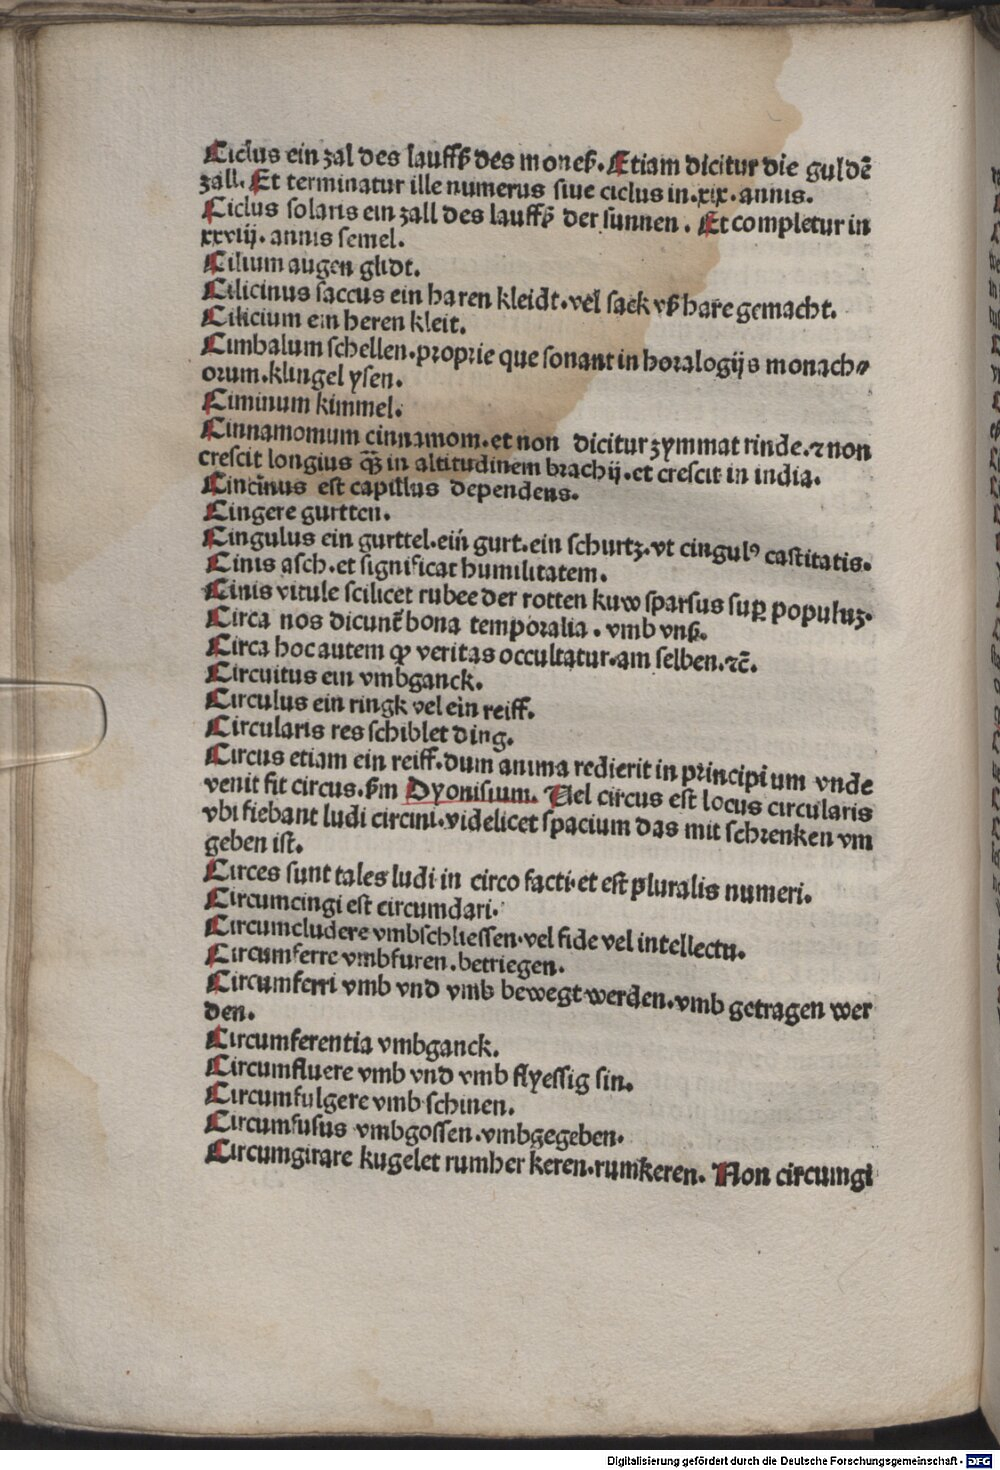 Ciclus ein zal des lauffß des moneß. Etiam dicitur die guldē
zall. Et terminatur ille numerus siue ciclus in.xix.annis.
Ciclus solaris ein zall des lauffß der sunnen. Et completur in
xxviij. annis semel.
Cilium augen glidt.
Cilicinus saccus ein haren kleidt.vel sack vß hare gemacht.
Cilicium ein heren kleit.
Cimbalum schellen.proprie que sonant in horalogijs monach⸗
orum.klingel ysen.
Ciminum kimmel.
Cinnamomum cinnamom.et non dicitur zymmat rinde.⁊ non
crescit longius qȝ̄ in altitudinem brachij.et crescit in india.
Cincīnus est capillus dependens.
Cingere gurtten.
Cingulus ein gurttel.ein gurt.ein schurtz.vt cingulꝰ castitatis.
Cinis asch.et significat humilitatem.
Cinis vitule scilicet rubee der rotten kuw sparsus suꝑ populuꝫ.
Circa nos dicunt̄ bona temporalia. vmb vnß.
Circa hoc autem ꝙ veritas occultatur.am selben.⁊c̄.
Circuitus ein vmbganck.
Circulus ein ringk vel ein reiff.
Circularis res schiblet ding.
Circus etiam ein reiff.dum anima redierit in principium vnde
venit fit circus.ẜm Dyonisium. Uel circus est locus circularis
vbi fiebant ludi circini.videlicet spacium das mit schrenken vm
geben ist.
Circes sunt tales ludi in circo facti.et est pluralis numeri.
Circumcingi est circumdari.
Circumcludere vmbschliessen.vel fide vel intellectu.
Circumferre vmbfuren.betriegen.
Circumferri vmb vnd vmb bewegt werden.vmb getragen wer
den.
Circumferentia vmbganck.
Circumfluere vmb vnd vmb flyessig sin.
Circumfulgere vmb schinen.
Circumfusus vmbgossen.vmbgegeben.
Circumgirare kugelet rumher keren.rumkeren. Non circumgi
Digitalisierung gefördert durch die Deutsche Forschungsgemeinschaft - DFG